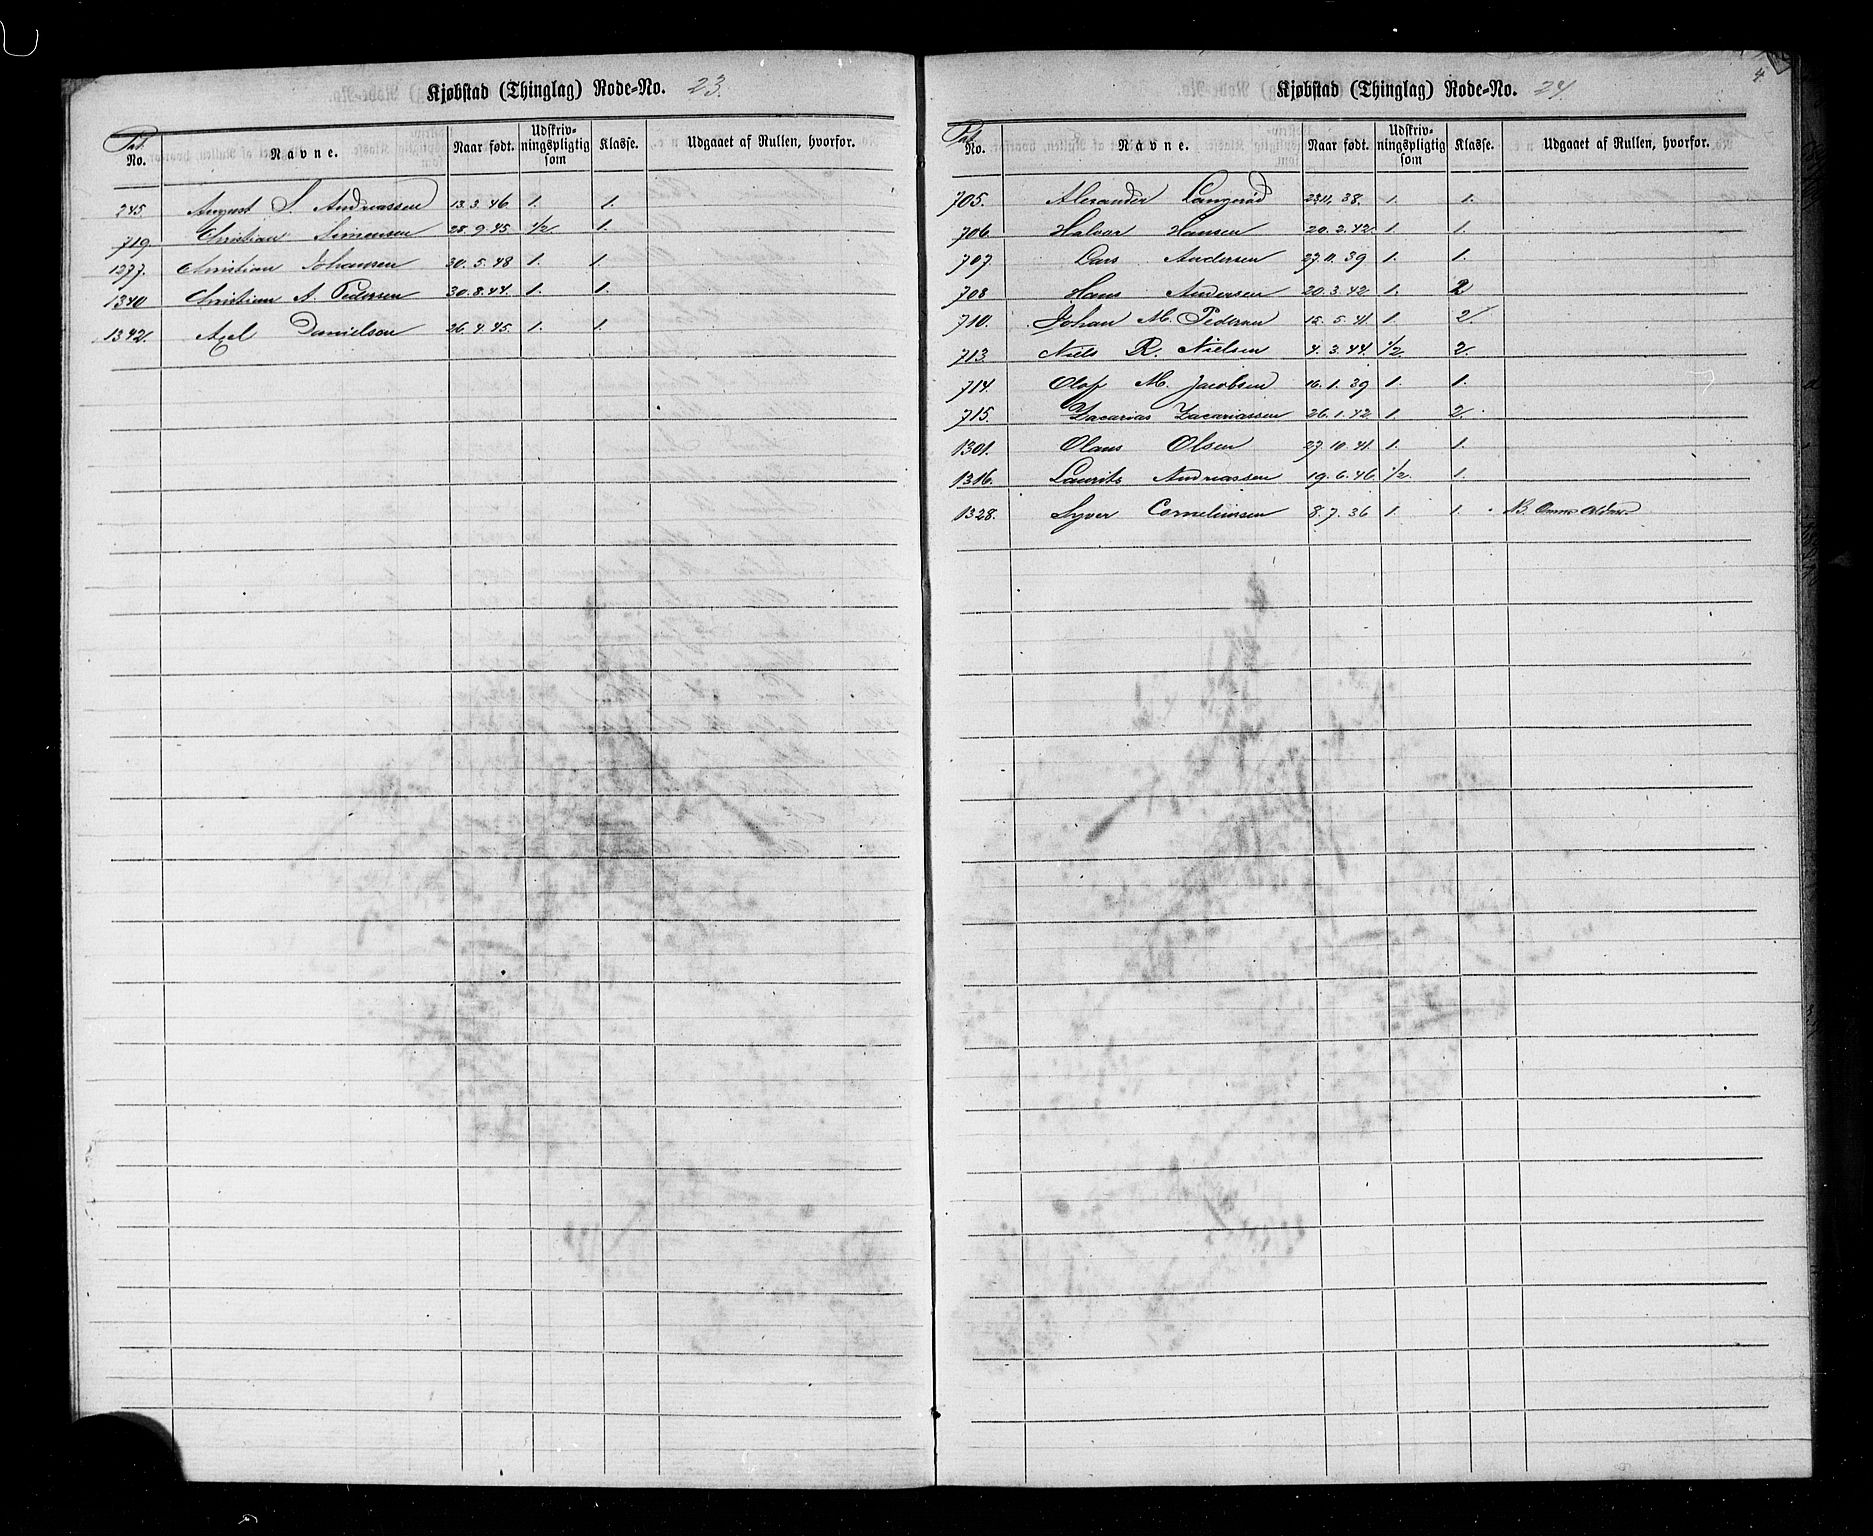 Kjøbstad (Thinglag) Rode-No. 23.
Pat. No. Navne. Naar født. Udskriv-ningspligtig som Klasse. Udgaaet af Rullen, hvorfor.
245. August S. Andreassen 13.3.46 1. 1.
719. Christian Simensen 28.9.45 1/2 1.
1277. Christian Johansen 30.5.48 1. 1.
1340 Christian A. Pedersen 30.8.44. 1. 1.
1342. Axel Danielsen 26.4.45. 1. 1.
Kjøbstad (Thinglag) Rode-No. 24.
4.
Pat. No. Navne. Naar født. Udskriv-ningspligtig som Klasse. Udgaaet af Rullen, hvorfor.
705. Alexander Langerød 38. 1. 1.
706. Halvor Hansen 20.2.42. 1. 1.
707. Lars Andersen 27.11.39 1. 1.
708 Hans Andersen 20.3.42 1. 2
710. Johan M. Pedersen 12.5.41. 1. 2.
713. Niels R. Nielsen 4.3.44. 1/2. 2.
714. Olaf M. Jacobsen 16.1.39 1. 1.
715. Zacarias Zacariassen 26.1.42. 1. 2.
1301. Olaus Olsen 27.10.41. 1. 1.
1316. Laurits Andreassen 19.6.46. 1/2. 1.
1328. Syver Corneliussen 8.7.36 1. 1.